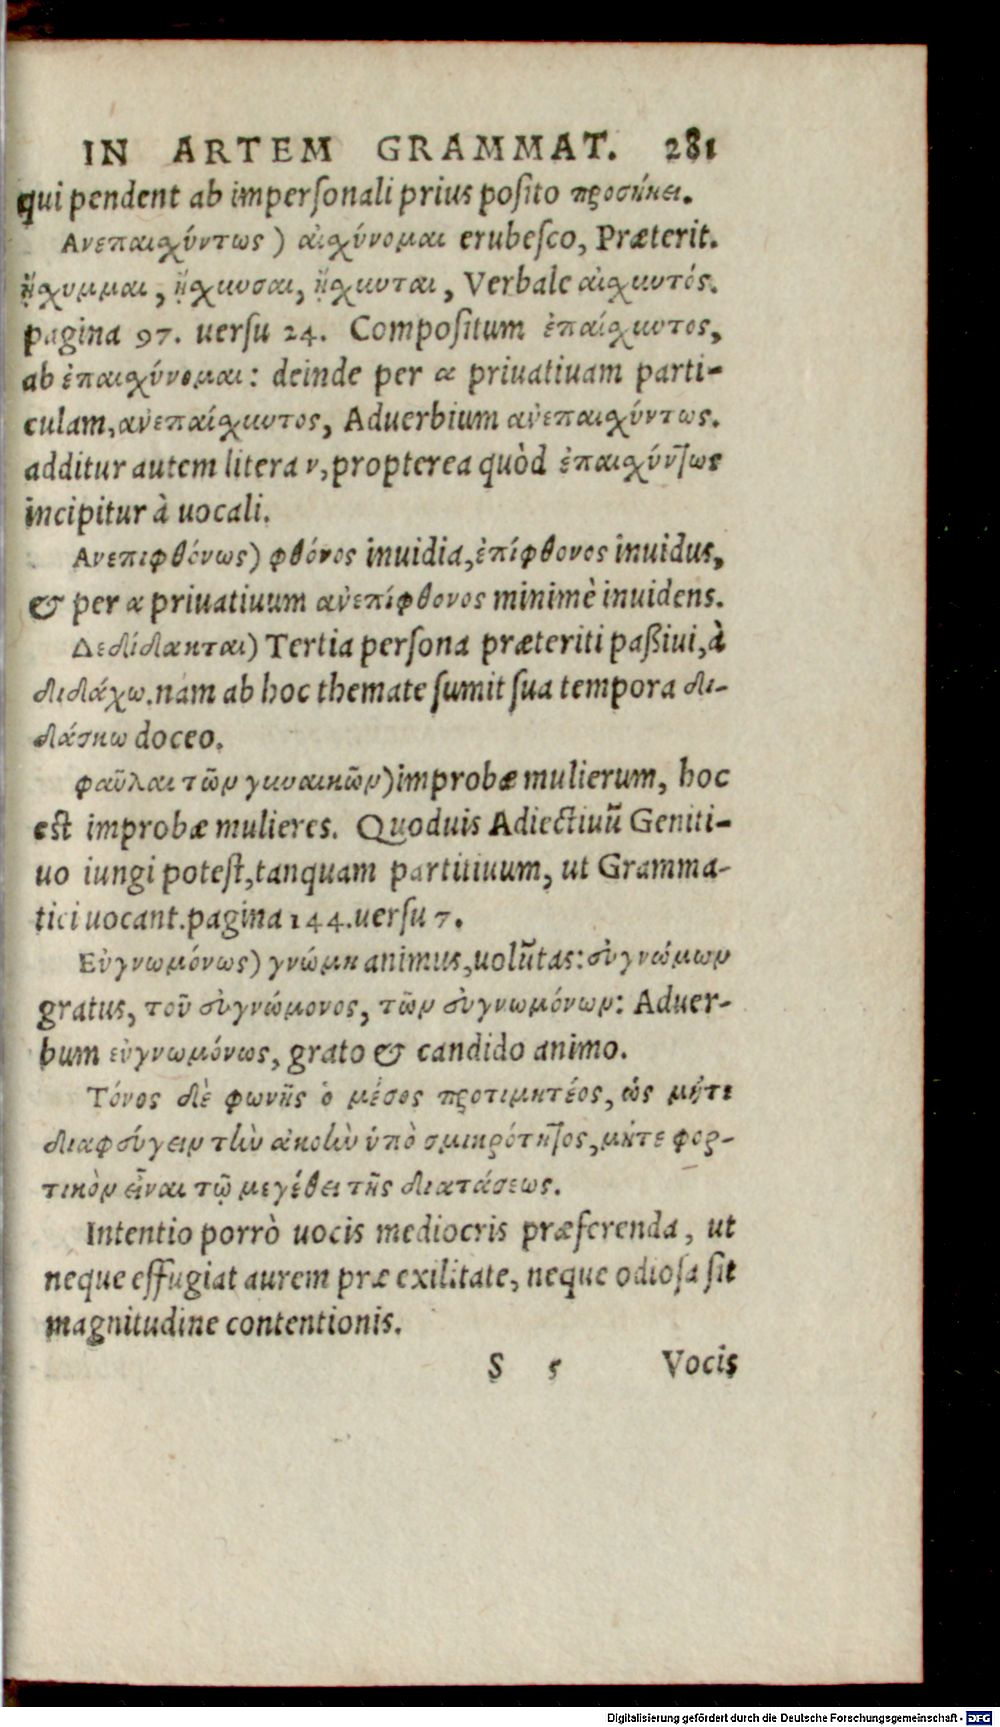 IN ARTEM GRAMMAT. 281
qui pendent ab impersonali prius posito προσήκει.
Ανεπαιχύντως) αἰχύνομαι erubesco, Præterit.
ᾔχυμμαι, ᾔχυσαι, ᾔχυται, Verbale αἰχυτός.
pagina 97. uersu 24. Compositum ἐπαίχυτος,
ab ἐπαιχύνομαι: deinde per α priuatiuam parti-
culam, ανεπαίχυτος, Aduerbium ανεπαιχύντως.
additur autem litera ν, propterea quòd ἐπαιχύντως
incipitur à uocali.
Ανεπιφθόνως) φθόνος inuidia, ἐπίφθονος inuidus,
& per α priuatiuum ανεπίφθονος minimè inuidens.
Δεδίδακται) Tertia persona præteriti paßiui, à
διδάχω. nam ab hoc themate sumit sua tempora δι-
δάσκω doceo.
φαῦλαι τῶν γυναικῶν) improbæ mulierum, hoc
est improbæ mulieres. Quoduis Adiectiuũ Geniti-
uo iungi potest, tanquam partitiuum, ut Gramma-
tici uocant. pagina 144. uersu 7.
Εὐγνωμόνως) γνώμη animus, uolũtas: εὐγνώμων
gratus, τοῦ εὐγνώμονος, τῶν εὐγνωμόνων: Aduer-
bum εὐγνωμόνως, grato & candido animo.
Τόνος δὲ φωνῆς ὁ μέσος προτιμητέος, ὡς μήτε
διαφεύγειν τὴν ἀκοὴν ὑπὸ σμικρότητος, μήτε φορ-
τικὸν εἶναι τῷ μεγέθει τῆς διατάσεως.
Intentio porrò uocis mediocris præferenda, ut
neque effugiat aurem præ exilitate, neque odiosa sit
magnitudine contentionis.
S 5 Vocis
Digitalisierung gefördert durch die Deutsche Forschungsgemeinschaft - DFG